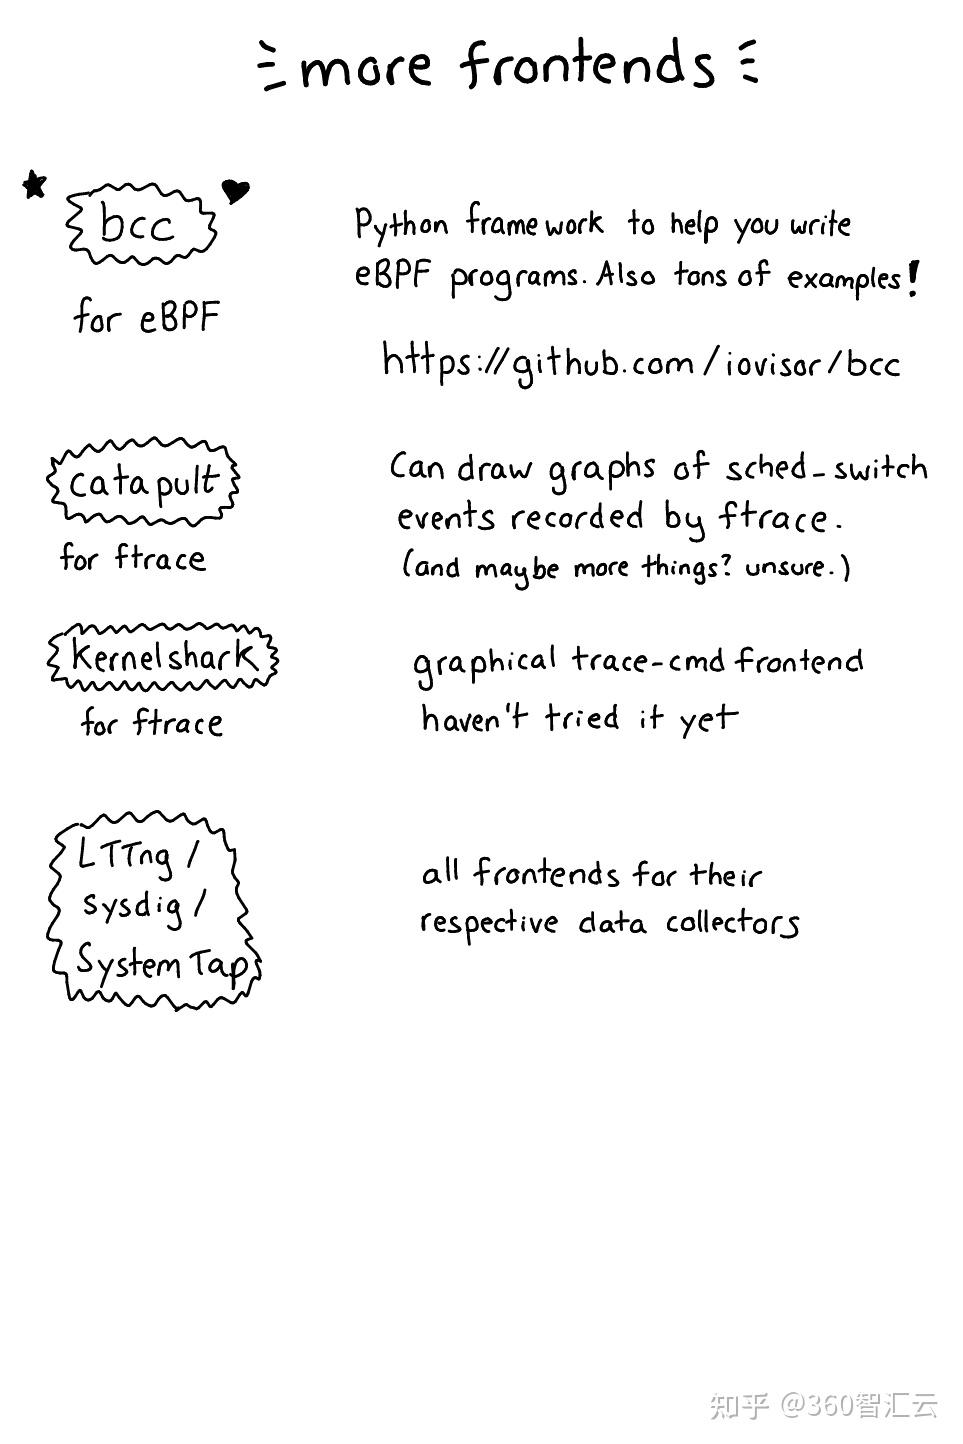 more frontends
bcc
for eBPF
Python framework to help you write
eBPF programs. Also tons of examples!
https://github.com/iovisor/bcc
catapult
for ftrace
Can draw graphs of sched_switch
events recorded by ftrace.
(and maybe more things? unsure.)
kernelshark
for ftrace
graphical trace-cmd frontend
haven't tried it yet
LTTng /
sysdig /
SystemTap
all frontends for their
respective data collectors
知乎 @360智汇云